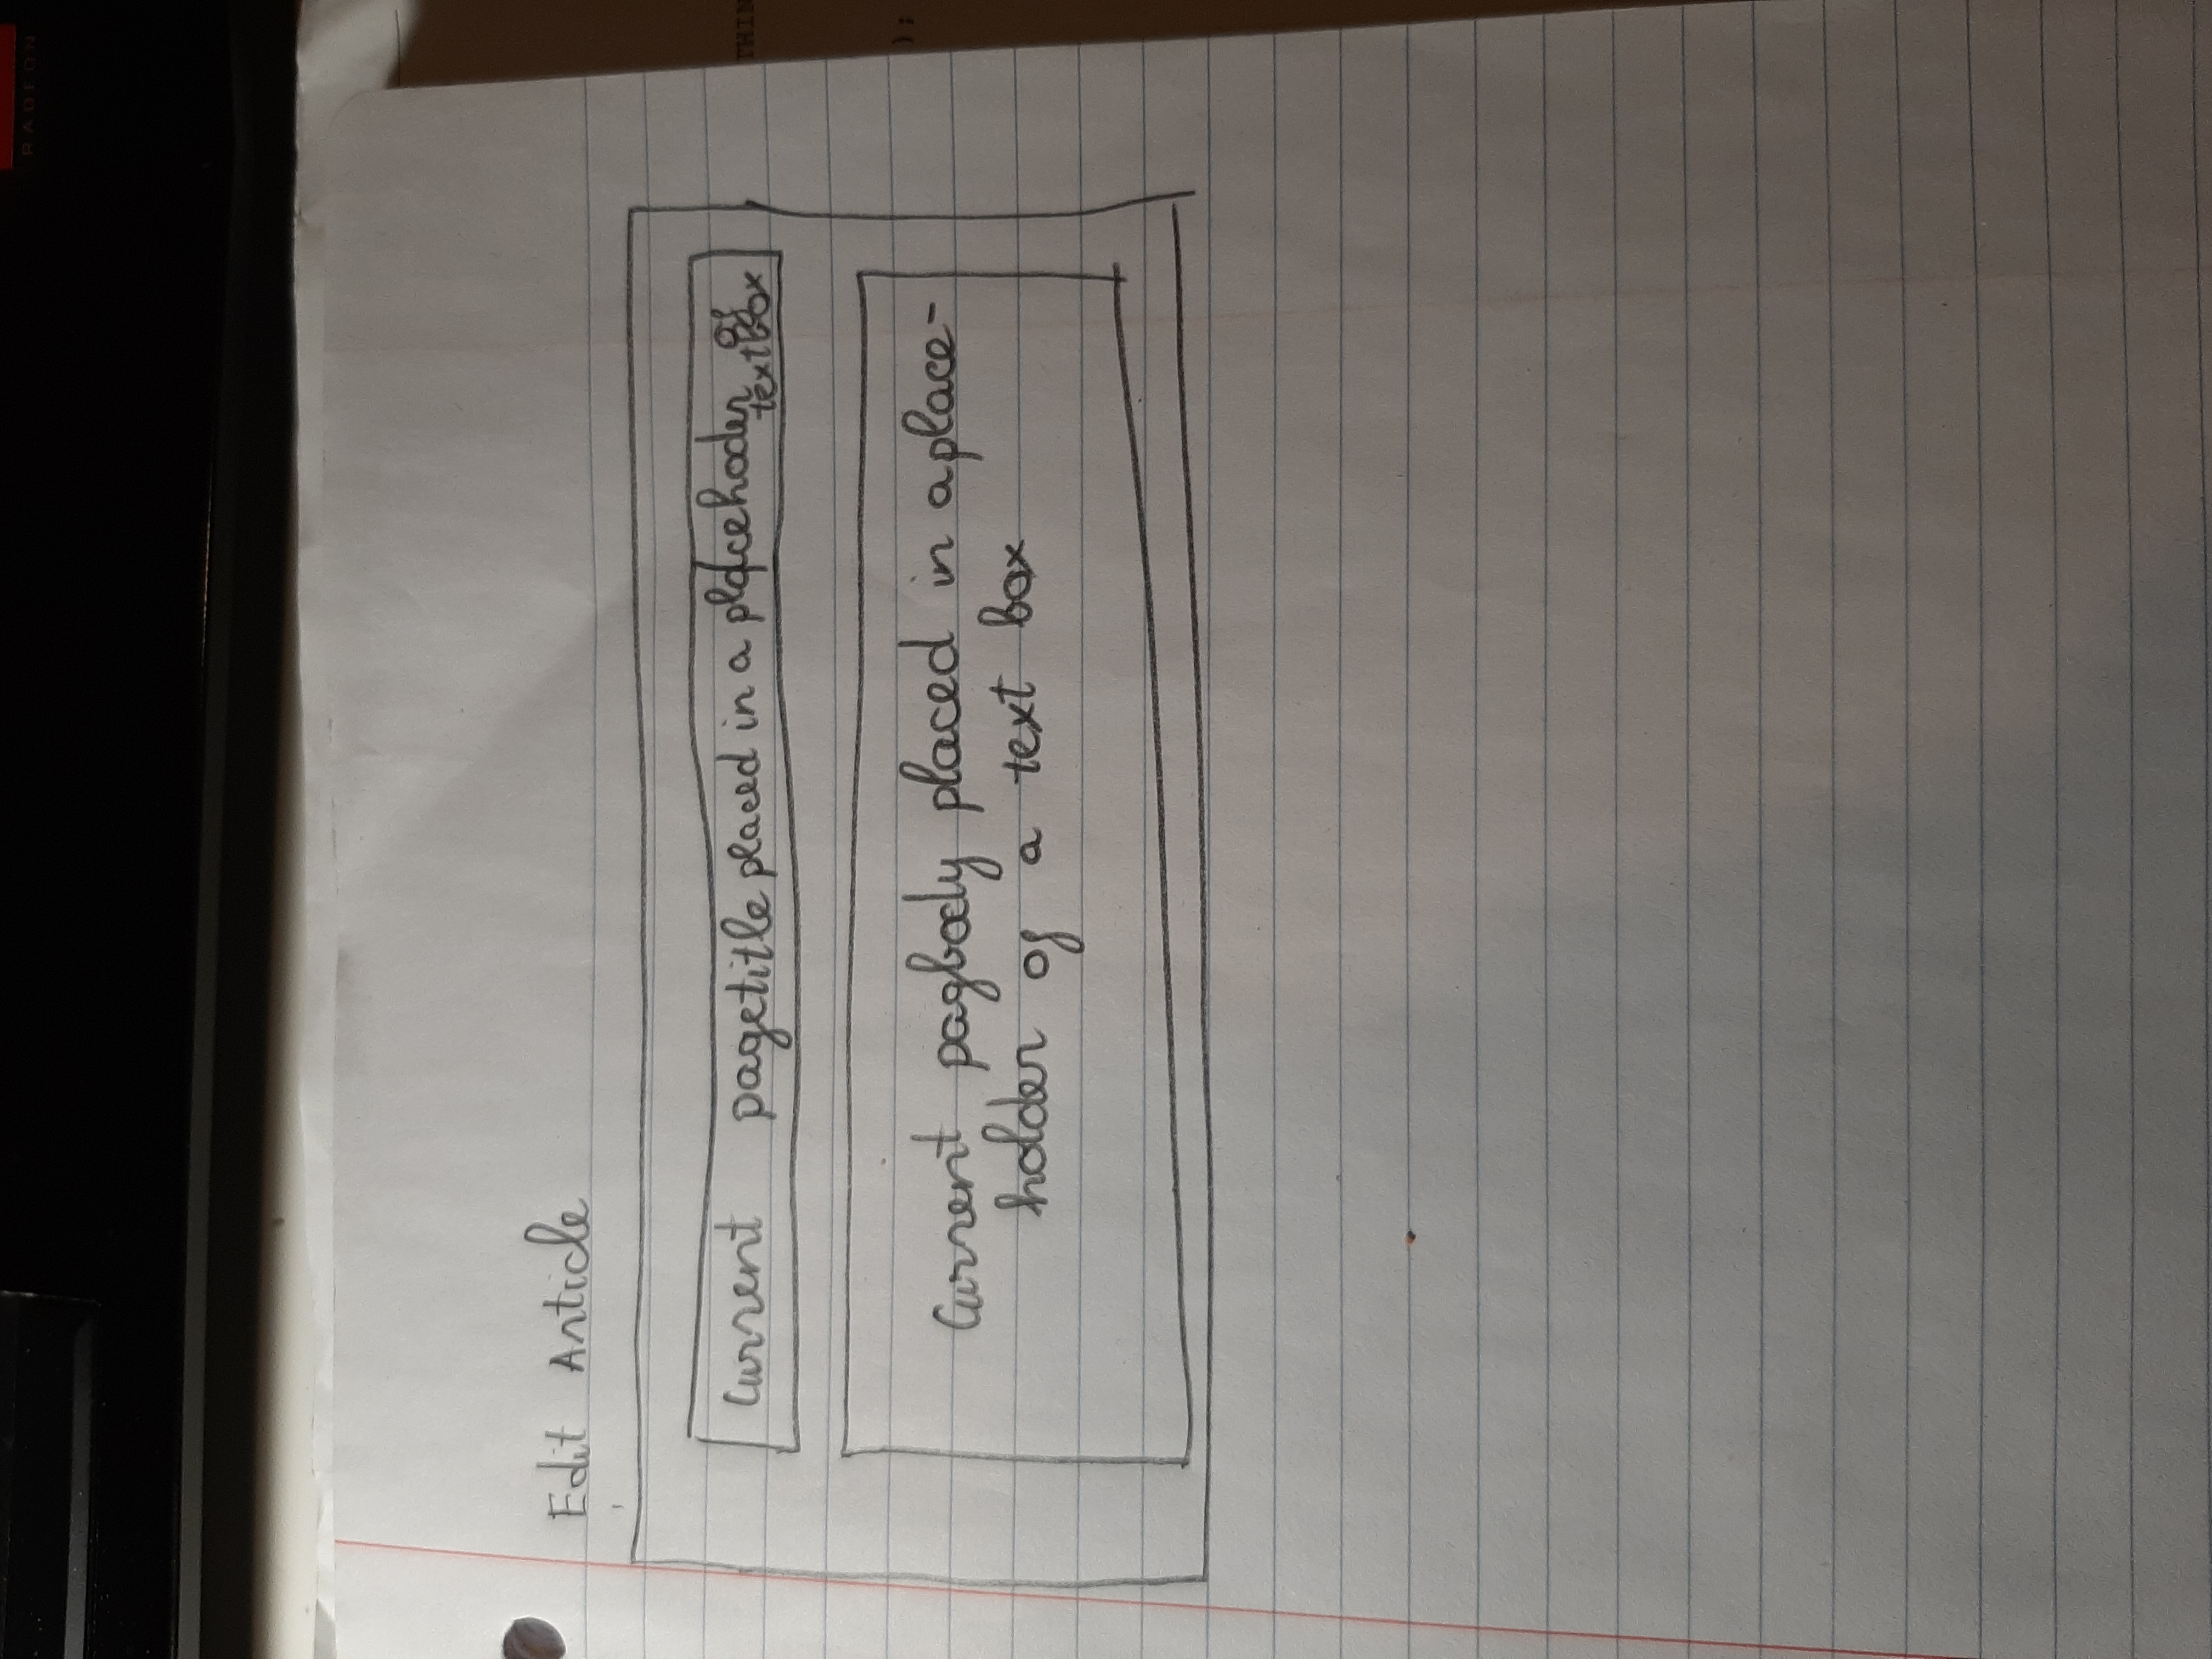 RADEON
Edit Article
Current pagetitle placed in a placehoder of
textbox
THIN
);
Current pagbody placed in a place-
holder of a text box